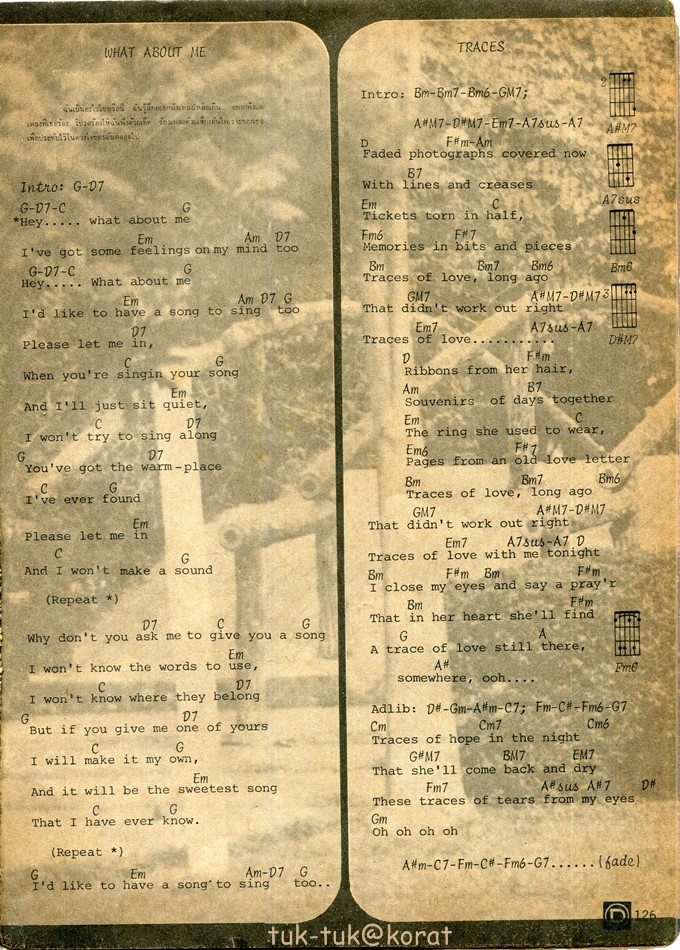 WHAT ABOUT ME
Intro: G-D7
G-D7-C G
*Hey..... what about me
Em Am D7
I've got some feelings on my mind too
G-D7-C G
Hey..... What about me
Em Am D7 G
I'd like to have a song to sing too
D7
Please let me in,
C G
When you're singin your song
Em
And I'll just sit quiet,
C D7
I won't try to sing along
G D7
You've got the warm-place
C G
I've ever found
Em
Please let me in
C G
And I won't make a sound
(Repeat *)
D7 C G
Why don't you ask me to give you a song
Em
I won't know the words to use,
C D7
I won't know where they belong
G D7
But if you give me one of yours
C G
I will make it my own,
Em
And it will be the sweetest song
C G
That I have ever know.
(Repeat *)
G Em Am-D7 G
I'd like to have a song to sing too..
TRACES
Intro: Bm-Bm7-Bm6-GM7;
A#M7-D#M7-Em7-A7sus-A7
D F#m-Am
Faded photographs covered now
B7
With lines and creases
Em C
Tickets torn in half,
Fm6 F#7
Memories in bits and pieces
Bm Bm7 Bm6
Traces of love, long ago
GM7 A#M7-D#M7
That didn't work out right
Em7 A7sus-A7
Traces of love...........
D F#m
Ribbons from her hair,
Am B7
Souvenirs of days together
Em C
The ring she used to wear,
Em6 F#7
Pages from an old love letter
Bm Bm7 Bm6
Traces of love, long ago
GM7 A#M7-D#M7
That didn't work out right
Em7 A7sus-A7 D
Traces of love with me tonight
Bm F#m Bm F#m
I close my eyes and say a pray'r
Bm F#m
That in her heart she'll find
G A
A trace of love still there,
A#
somewhere, ooh....
Adlib: D#-Gm-A#m-C7; Fm-C#-Fm6-G7
Cm Cm7 Cm6
Traces of hope in the night
G#M7 BM7 EM7
That she'll come back and dry
Fm7 A#sus A#7 D#
These traces of tears from my eyes
Gm
Oh oh oh oh
A#m-C7-Fm-C#-Fm6-G7......(fade)
2
A#M7
A7sus
Bm6
3
D#M7
Fm6
D 126
tuk-tuk@korat